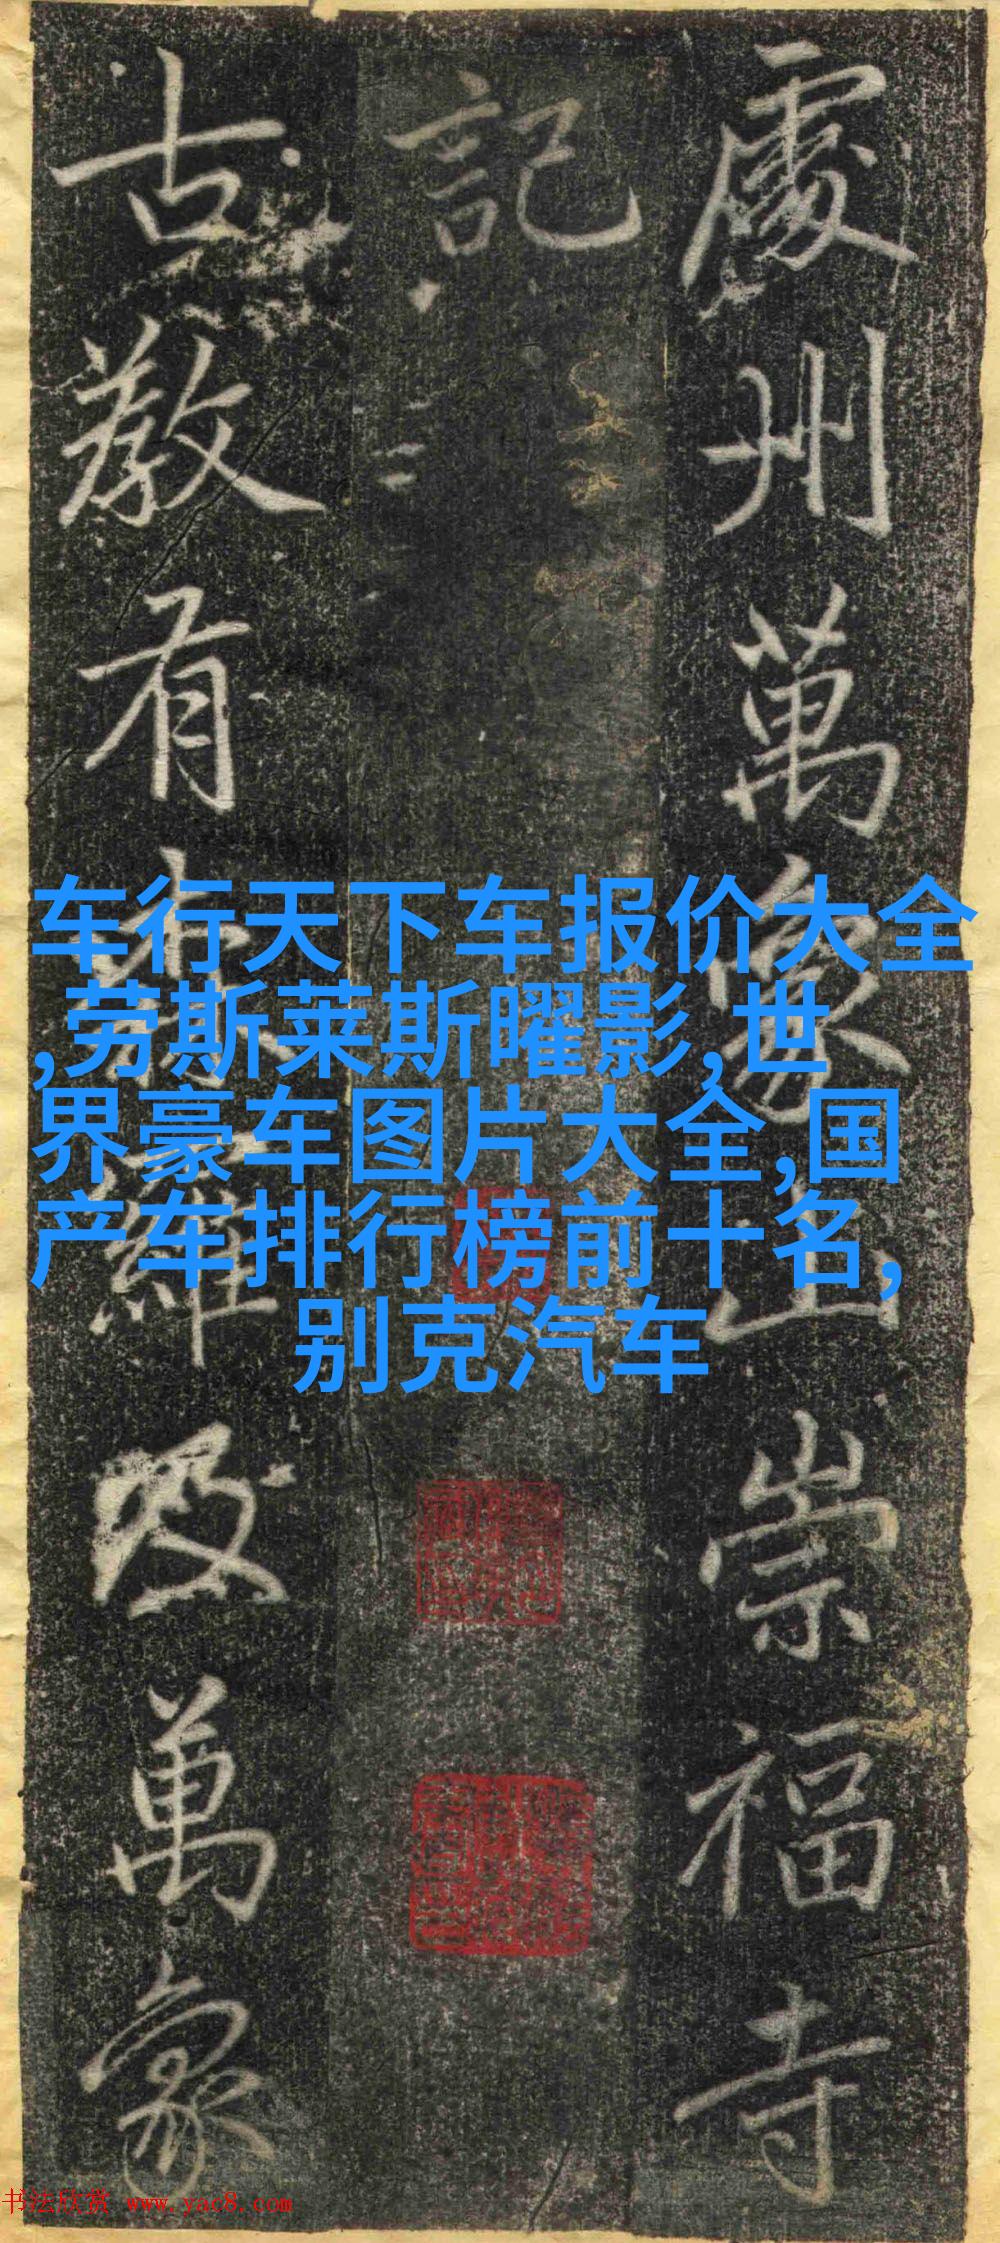 處州萬象山崇福寺
記
古教有森羅及萬象
车行天下车报价大全
,劳斯莱斯曜影,世
界豪车图片大全,国
产车排行榜前十名,
别克汽车
书法欣赏 www.yac8.com